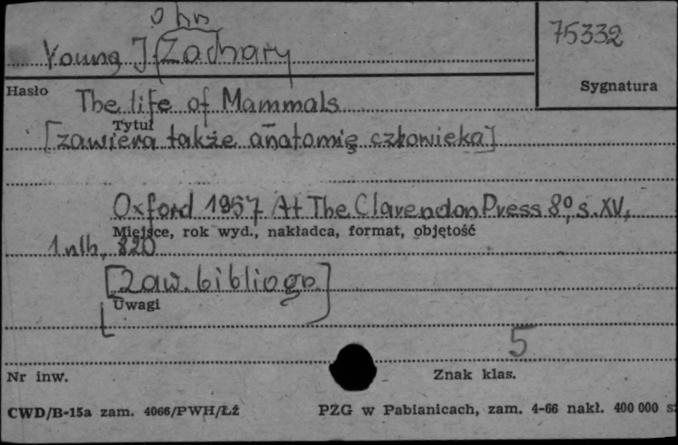 ohn
75332
Young J Zachary
Sygnatura
Hasło
The life of Mammals
Tytuł
[zawiera także anatomię człowieka]
Oxford 1957 At The Clarendon Press 8°, s. XV,
Miejsce, rok wyd., nakładca, format, objętość
1 nlb, 820
[Zaw. bibliogr.]
Uwagi
5
Nr inw.
Znak klas.
CWD/B-15a zam. 4066/PWH/ŁŻ PZG w Pabianicach, zam. 4-66 nakł. 400 000